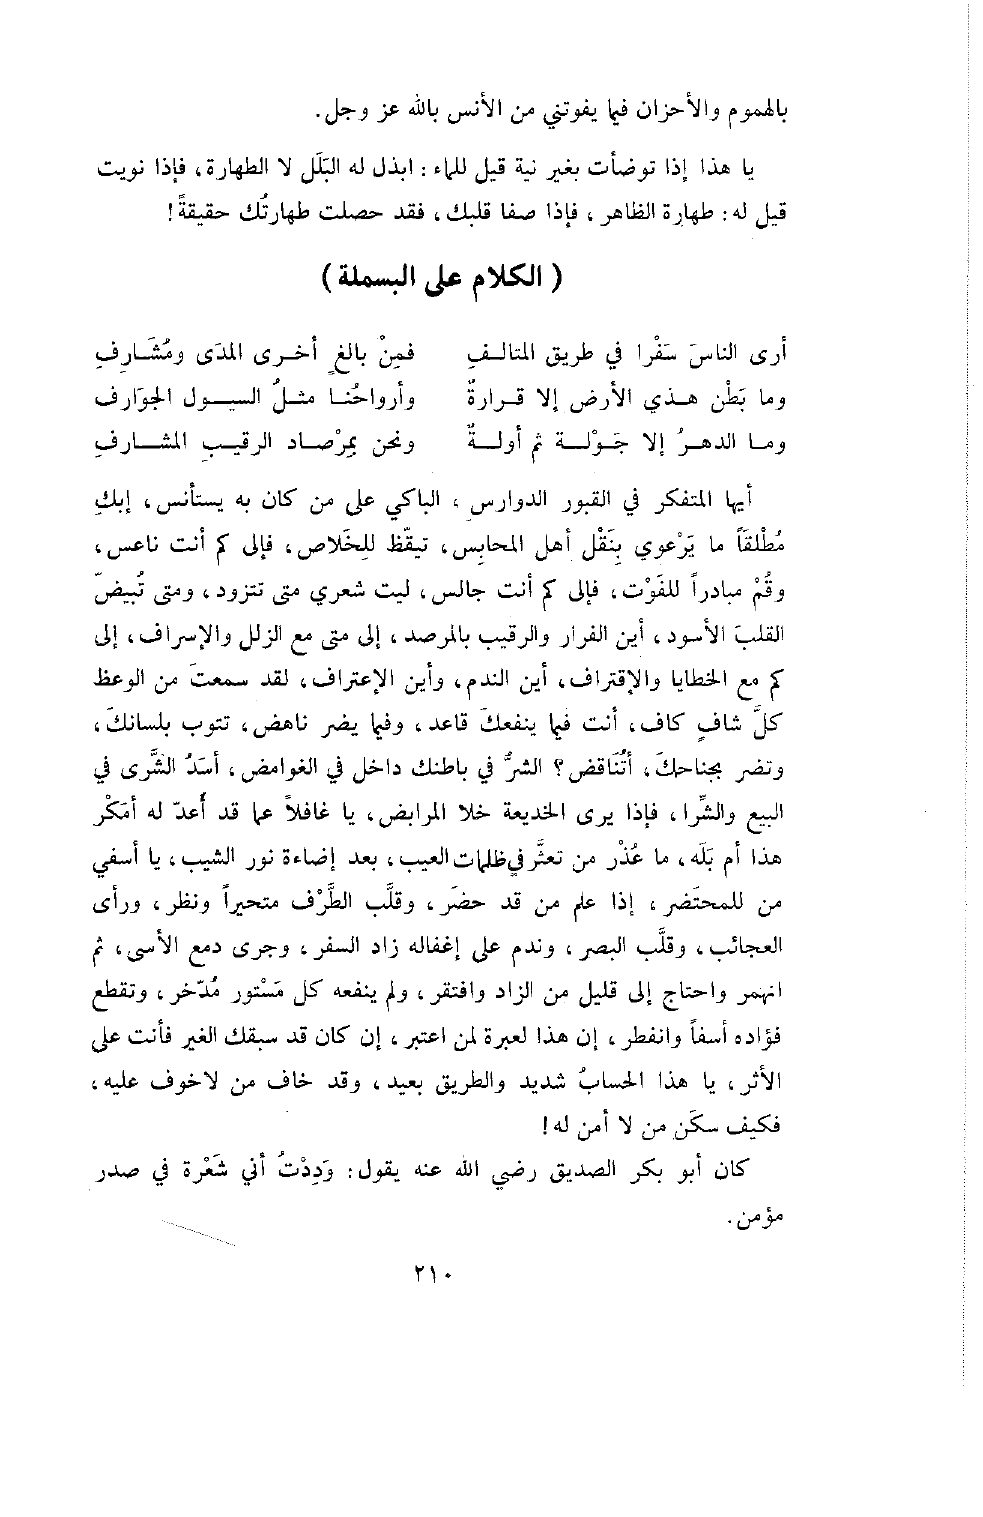 بالهموم والأحزان فيما يفوتني من الأنس بالله عز وجل.
يا هذا إذا توضأت بغير نية قيل للماء : ابذل له البَلَل لا الطهارة، فإذا نويت
قيل له : طهارة الظاهر ، فإذا صفا قلبك ، فقد حصلت طهارتُك حقيقةً !
( الكلام على البسملة )
أرى الناسَ سَفْرا في طريق المتالـفِ فمِنْ بالغٍ أخـرى المدَى ومُشَـارِفِ
وما بَطْن هـذي الأرض إلا قـرارةٌ وأرواحُنـا مثـلُ السيـول الجوَارف
ومـا الدهـرُ إلا جَـوْلـة ثم أولـةٌ ونحن بمِرْصـاد الرقيـبِ المشـارفِ
أيها المتفكر في القبور الدوارس ، الباكي على من كان به يستأنس ، إبكِ
مُطْلقَاً ما يَرْعوي بِنَقْل أهل المحابِس، تيقّظ للخَلاص، فإلى كم أنت ناعس،
وقُمْ مبادراً للفَوْت، فإلى كم أنت جالس، ليت شعري متى تتزود، ومتى تُبيضّ
القلبَ الأسود، أين الفرار والرقيب بالمرصد، إلى متى مع الزلل والإسراف، إلى
كم مع الخطايا والإقتراف، أين الندم، وأين الإعتراف، لقد سمعتَ من الوعظ
كلَّ شافٍ كاف، أنت فيما ينفعكَ قاعد، وفيما يضر ناهض، تتوب بلسانكَ،
وتضر بجناحكَ، أتُنَاقض؟ الشرُّ في باطنك داخل في الغوامض، أسَدُ الشَّرى في
البيع والشِّرا، فإذا يرى الخديعة خلا المرابض، يا غافلاً عما قد أُعدّ له أمَكْر
هذا أم بَلَه، ما عُذْر من تعثَّر في ظلمات العيب، بعد إضاءة نور الشيب، يا أسفي
من للمحتَضر ، إذا علم من قد حضَر، وقلَّب الطَّرْف متحيراً ونظر، ورأى
العجائب، وقلَّب البصر، وندم على إغفاله زاد السفر، وجرى دمع الأسى، ثم
انهمر واحتاج إلى قليل من الزاد وافتقر، ولم ينفعه كل مَسْتور مُدّخر، وتقطع
فؤاده أسفاً وانفطر، إن هذا لعبرة لمن اعتبر، إن كان قد سبقك الغير فأنت على
الأثر، يا هذا الحسابُ شديد والطريق بعيد، وقد خاف من لاخوف عليه،
فكيف سكَن من لا أمن له !
كان أبو بكر الصديق رضي الله عنه يقول : وَدِدْتُ أني شَعْرة في صدر
مؤمن .
٢١٠